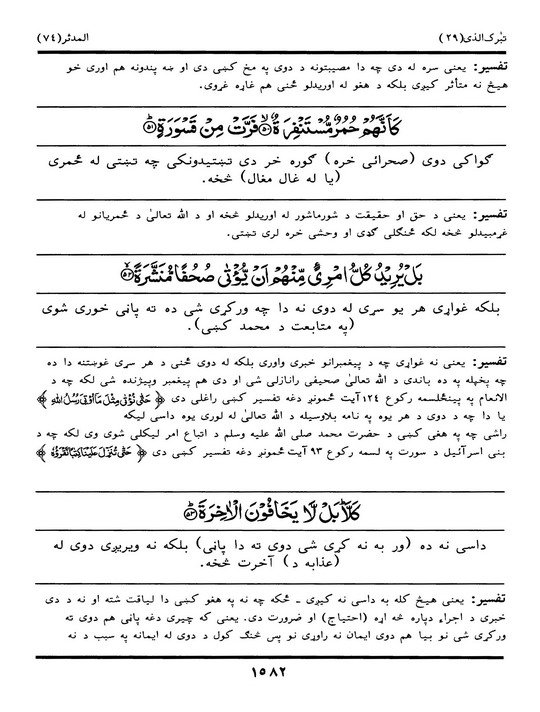 تبٰرک الذی (۲۹) المدثر (۷٤)
تفسیر: یعنی سره له دی چه دا مصیبتونه د دوی په مخ کښی دی او ښه پندونه هم اوری خو
هیڅ نه متأثر کیږی بلکه د هغو له اوریدلو څنی هم غاړه غړوی.
كَاَنَّهُمْ حُمُرٌ مُّسْتَنْفِرَةٌ ۙ۵۰ فَرَّتْ مِنْ قَسْوَرَةٍ ؕ۵۱
ګواکی دوی (صحرائی خره) ګوره خر دی تښتیدونکی چه تښتی له ځمری
(یا له غال مغال) څخه.
تفسیر: یعنی د حق او حقیقت د شورماشور له اوریدلو څخه او د الله تعالیٰ د ځمریانو له
غړمبیدلو څخه لکه ځنګلی ګډی او وحشی خره لری تښتی.
بَلْ يُرِيْدُ كُلُّ امْرِئٍ مِّنْهُمْ اَنْ يُّؤْتٰى صُحُفًا مُّنَشَّرَةً ۙ۵۲
بلکه غواړی هر یو سړی له دوی نه دا چه ورکړی شی ده ته پاڼی خوری شوی
(په متابعت د محمد کښی).
تفسیر: یعنی نه غواړی چه د پیغمبرانو خبری واوری بلکه له دوی څنی د هر سړی غوښتنه دا ده
چه پخپله په ده باندی د الله تعالیٰ صحیفی رانازلی شی او دی هم پیغمبر وپیژنده شی لکه چه د
الانعام په پینځلسمه رکوع ۱۲٤ آیت ځمونږ دغه تفسیر کښی راغلی دی ﴿ حَتّٰى نُؤْتٰى مِثْلَ مَآ اُوْتِىَ رُسُلُ اللهِ ﴾
یا دا چه د دوی د هر یوه په نامه بلاوسیله د الله تعالیٰ له لوری یوه داسی لیکه
راشی چه په هغی کښی د حضرت محمد صلی الله علیه وسلم د اتباع امر لیکلی شوی وی لکه چه د
بنی اسرآئیل د سورت په لسمه رکوع ۹۳ آیت ځمونږ دغه تفسیر کښی دی ﴿ حَتّٰى تُنَزِّلَ عَلَيْنَا كِتٰبًا نَّقْرَؤُهٗ ﴾
كَلَّا ؕ بَلْ لَّا يَخَافُوْنَ الْاٰخِرَةَ ؕ۵۳
داسی نه ده (ور به نه کړی شی دوی ته دا پاڼی) بلکه نه ویریږی دوی له
(عذابه د) آخرت څخه.
تفسیر: یعنی هیڅ کله به داسی نه کیږی ـ ځکه چه نه په هغو کښی دا لیاقت شته او نه د دی
خبری د اجراء دپاره څه اړه (احتیاج) او ضرورت دی. یعنی که چیری دغه پاڼی هم دوی ته
ورکړی شی نو بیا هم دوی ایمان نه راوړی نو پس څنګ کول د دوی له ایمانه په سبب د نه
۱۵۸۲